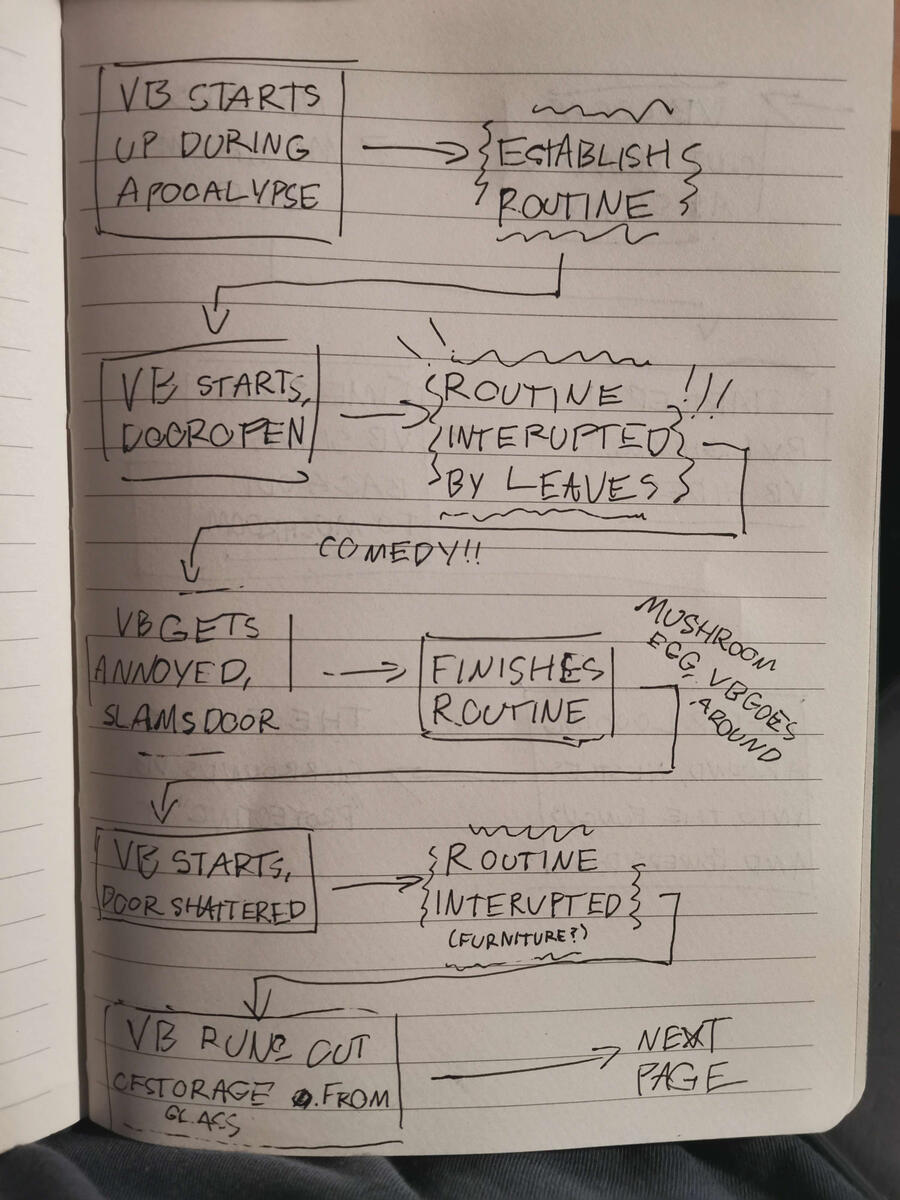 VB STARTS
UP DURING
APOCALYPSE
ESTABLISH
ROUTINE
VB STARTS,
DOOR OPEN
ROUTINE
INTERUPTED
BY LEAVES
!!!
COMEDY!!
VB GETS
ANNOYED,
SLAMS DOOR
FINISHES
ROUTINE
MUSHROOM
EGG, VB GOES
AROUND
VB STARTS,
DOOR SHATTERED
ROUTINE
INTERUPTED
(FURNITURE?)
VB RUNS OUT
OF STORAGE FROM
GLASS
NEXT
PAGE